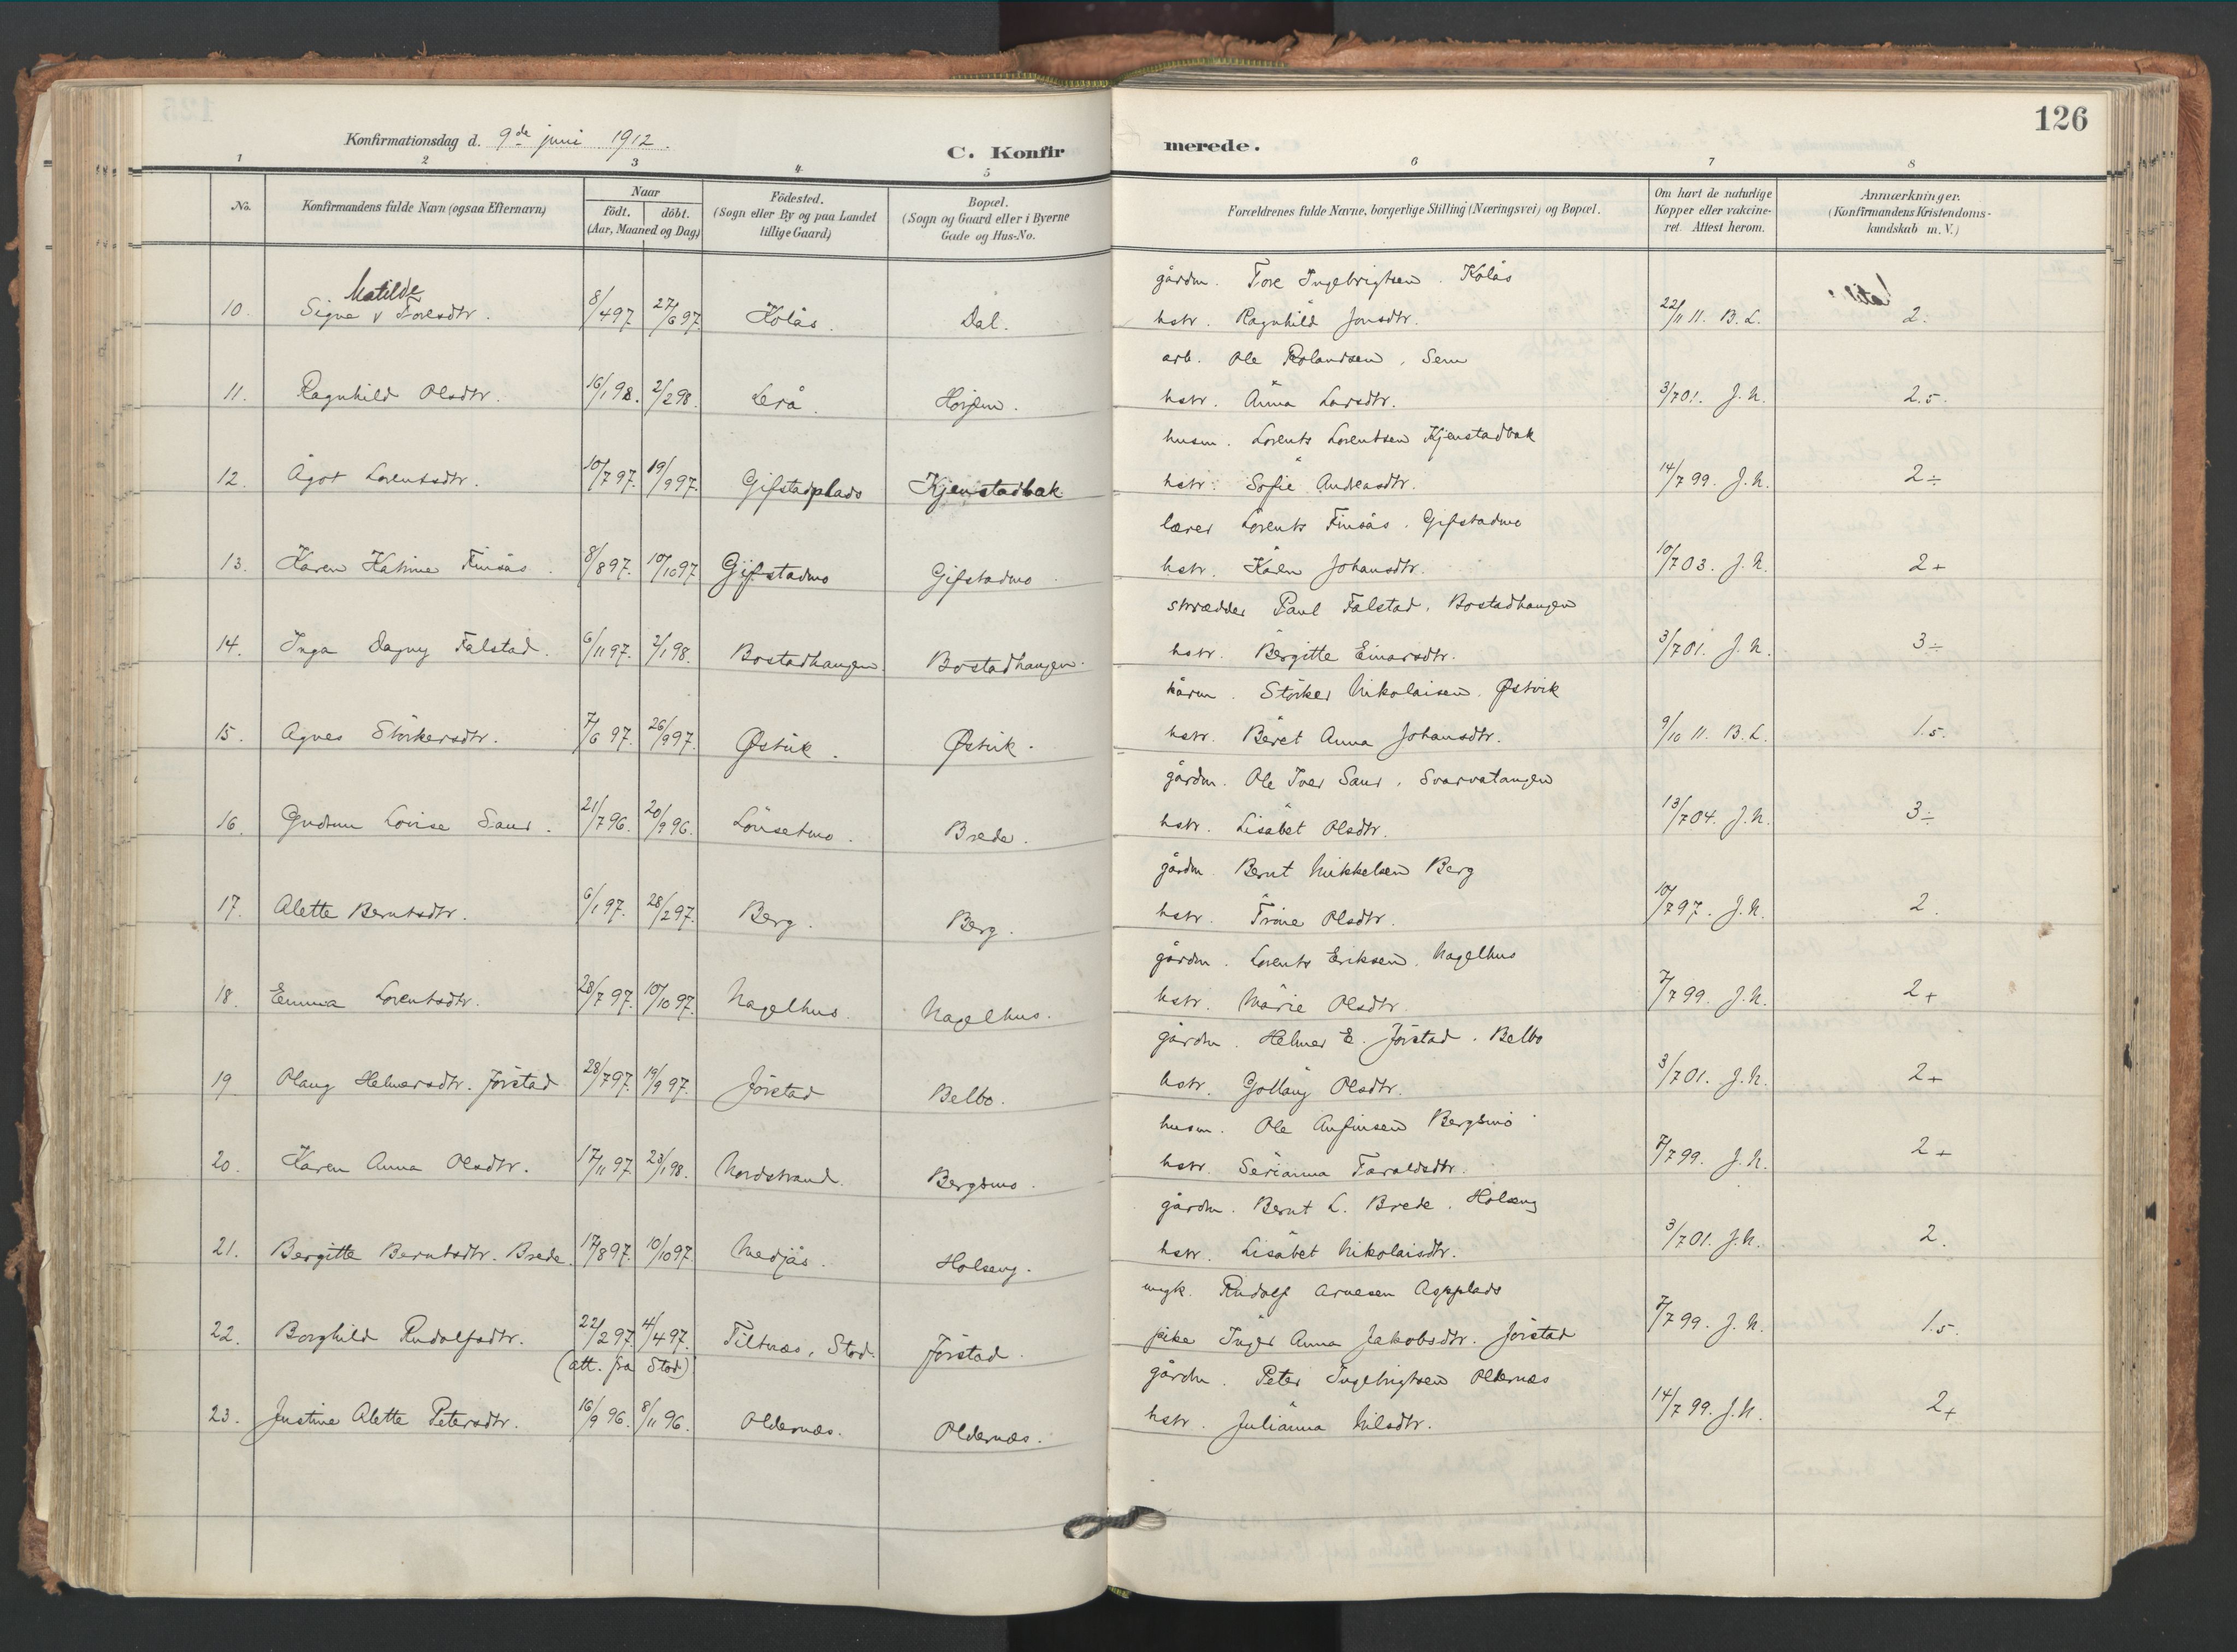 126
Konfirmationsdag d. 9de juni 1912.
C. Konfirmerede.
1 2 3 4 5 6 7 8
No. Konfirmandens fulde Navn (ogsaa Efternavn) Naar födt. döbt. (Aar, Maaned og Dag) Födested. (Sogn eller By og paa Landet tillige Gaard) Bopæl. (Sogn og Gaard eller i Byerne Gade og Hus-No. Forældrenes fulde Navne, borgerlige Stilling (Næringsvei) og Bopæl. Om havt de naturlige Kopper eller vakcineret. Attest herom. Anmærkninger. (Konfirmandens Kristendomskundskab m. V.)
Matilde gårdm. Tore Ingebrigtsen. Kolås
10. Signe v Toresdtr. 8/4 97 27/6 97. Kolås. Dal. hstr. Ragnhild Jonsdtr. 22/11 11. B. L. 2.
arb. Ole Rolandsen, Sem
11. Ragnhild Olsdtr. 16/1 98. 2/2 98. Lerå. Horjem. hstr. Anna Larsdtr. 3/7 01. J. N. 2.5.
husm. Lorents Lorentsen Kjenstadbak
12. Ågot Lorentsdtr. 10/7 97. 19/9 97. Gifstadplads Kjenstadbak. hstr. Sofie Andreasdtr. 14/7 99. J. N. 2÷
lærer Lorents Finsås. Gifstadmo
13. Karen Katrine Finsås. 8/8 97. 10/10 97 Gifstadmo Gifstadmo hstr. Karen Johansdtr. 10/7 03. J. N. 2+
skrædder Paul Falstad, Bostadhaugen
14. Inga Dagny Falstad. 6/11 97. 2/1 98. Bostadhaugen. Bostadhaugen. hstr. Bergitte Einarsdtr. 3/7 01. J. N. 3÷
kårm. Störker Nikolaisen. Østvik
15. Agnes Störkersdtr. 7/6 97. 26/9 97. Østvik. Østvik. hstr. Beret Anna Johansdtr. 9/10 11. B. L. 1.5.
gårdm. Ole Iver Saur, Svarvatangen
16. Gudrun Lovise Saur. 21/7 96. 20/9 96. Lönsetmo. Brede. hstr. Lisabet Olsdtr. 13/7 04. J. N. 3÷
gårdm Bernt Mikkelsen Berg
17. Alette Berntsdtr. 6/1 97. 28/2 97. Berg. Berg. hstr. Trine Olsdtr. 10/7 97. J. N. 2.
gårdm. Lorents Eriksen. Nagelhus
18. Emma Lorentsdtr. 28/7 97. 10/10 97. Nagelhus. Nagelhus. hstr. Marie Olsdtr. 7/7 99. J. N. 2+
gårdm. Helmer E. Jörstad. Belbo
19 Olaug Helmersdtr. Jörstad 28/7 97. 19/9 97. Jörstad Belbo. hstr. Gollaug Olsdtr. 3/7 01. J. N. 2+
husm. Ole Anfinsen Bergsmo
20. Karen Anna Olsdtr. 17/11 97 23/1 98. Nordstrand. Bergsmo. hstr. Serianna Taraldsdtr. 7/7 99. J. N. 2+
gårdm. Bernt L. Brede. Holseng
21. Bergitte Berntsdtr. Brede. 17/8 97. 10/10 97. Medjås. Holseng. hstr. Lisabet Nikolaisdtr. 3/7 01. J. N. 2.
ungk. Rudolf Arnesen Aspplads
22. Borghild Rudolfsdtr. 22/2 97. 4/4 97. Tiltnæs, Stod. Jörstad. pike Inger Anna Jakobsdtr. Jörstad 7/7 99. J. N. 1.5.
(att. fra Stod) gårdm. Peter Ingebrigtsen Oldernæs
23. Justine Alette Petersdtr. 16/9 96. 8/11 96. Oldernæs. Oldernæs. hstr. Julianna Nilsdtr. 14/7 99. J. N. 2+